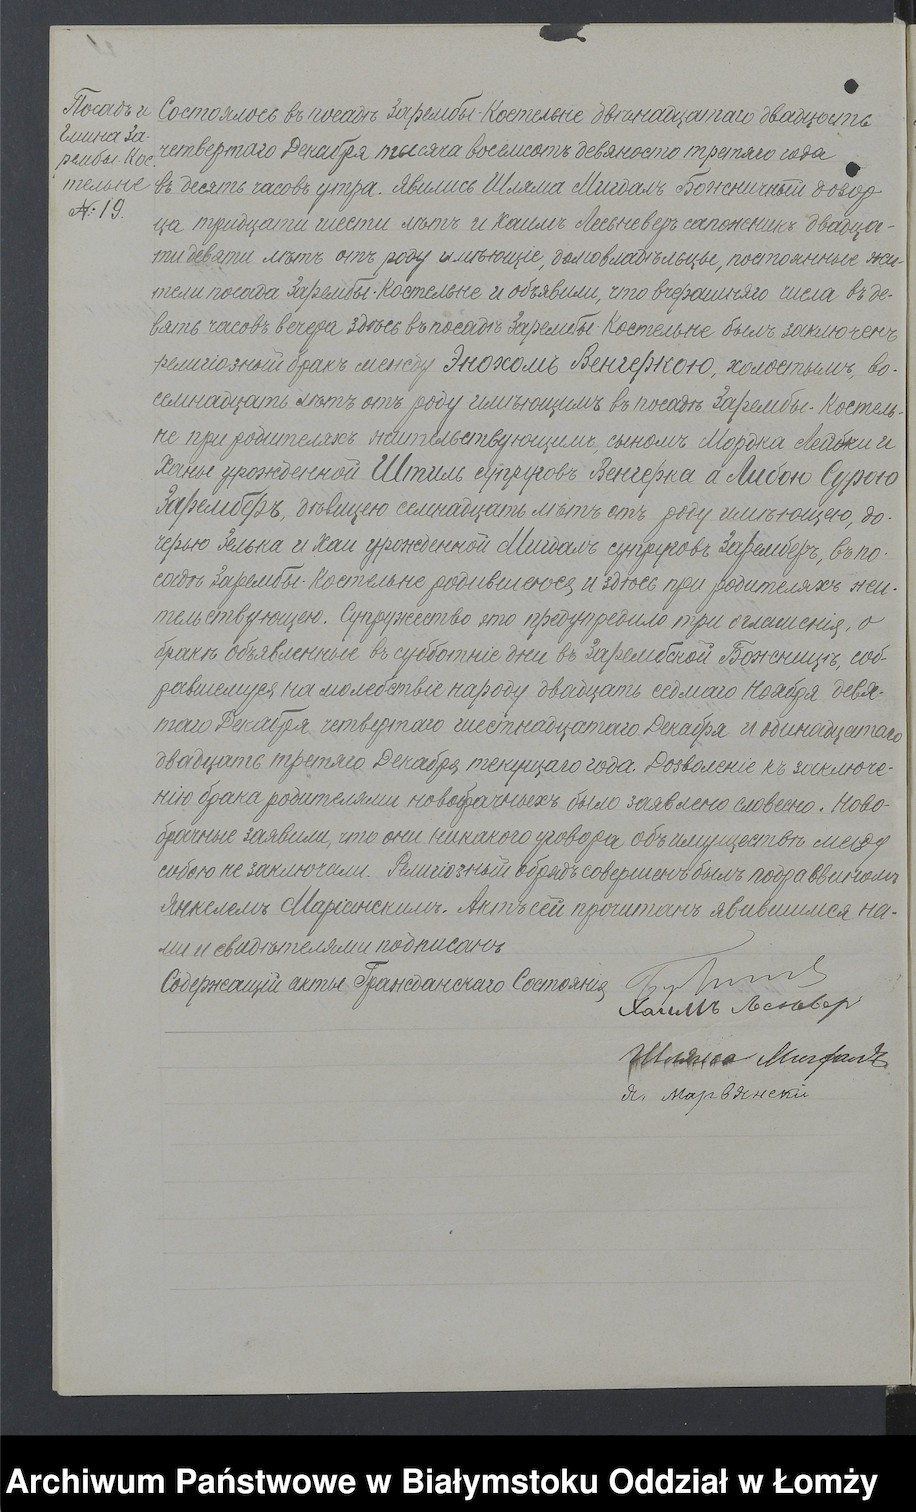 Посадъ и
Гмина За-
рембы-Кос-
тельне
№ 19.
Состоялось въ посадѣ Зарембы-Костельне двѣнадцатаго двадцать
четвертаго Декабря тысяча восемсотъ девяносто третяго года
въ десять часовъ утра. Явились Шляма Мигдалъ Божничный дозор
ца тридцати шести лѣтъ и Хаимъ Лесьневеръ сапожникъ двадца-
ти девяти лѣтъ отъ роду имѣющіе, домовладѣльцы, постоянные жи-
тели посада Зарембы-Костельне и объявили, что вчерашняго числа въ де-
вять часовъ вечера здѣсь въ посадѣ Зарембы-Костельне былъ заключенъ
религіозный бракъ между Энохомъ Венгеркою, холостымъ, во-
семнадцать лѣтъ отъ роду имѣющимъ въ посадѣ Зарембы-Костель-
не при родителяхъ жительствующимъ, сыномъ Мордка Лейбки и
Ханы урожденной Штиль супруговъ Венгерка а Либою Сурою
Заремберъ, дѣвицею семнадцать лѣтъ отъ роду имѣющею, до-
черью Зелька и Хаи урожденной Мигдалъ супруговъ Заремберъ, въ по-
садѣ Зарембы-Костельне родившеюся и здѣсь при родителяхъ жи-
тельствующею. Супружество это предупредило три оглашенія, о
бракѣ объявленные въ субботніе дни въ Зарембской Божницѣ, соб-
равшемуся на молебствіе народу двадцать седмаго Ноября девя-
таго Декабря, четвертаго шестнадцатаго Декабря и одинадцатаго
двадцать третяго Декабря текущаго года. Дозволеніе къ заключе-
нію брака родителями новобрачныхъ было заявлено словесно. Ново-
брачные заявили, что они никакого уговора объ имуществѣ между
собою не заключали. Религіозный обрядъ совершенъ былъ подраввиномъ
Янкелемъ Маріанскимъ. Актъ сей прочитанъ явившимся на-
ми и свидѣтелями подписанъ
Содержащій акты Гражданскаго Состоянія
Хаимъ Лесневер
Шляма Мигдалъ
Я. Марвянски
Archiwum Państwowe w Białymstoku Oddział w Łomży